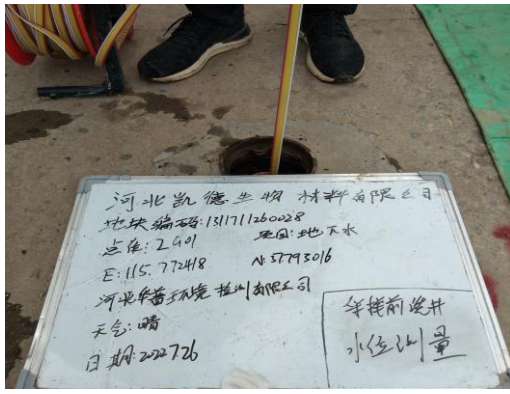 河北凯德生物材料有限公司
地块编码:1311711260028
点位:2G01 项目:地下水
E:115.772418 N:37.793016
河北华普环境检测有限公司
天气:晴
日期:2022.7.26
采样前洗井
水位测量